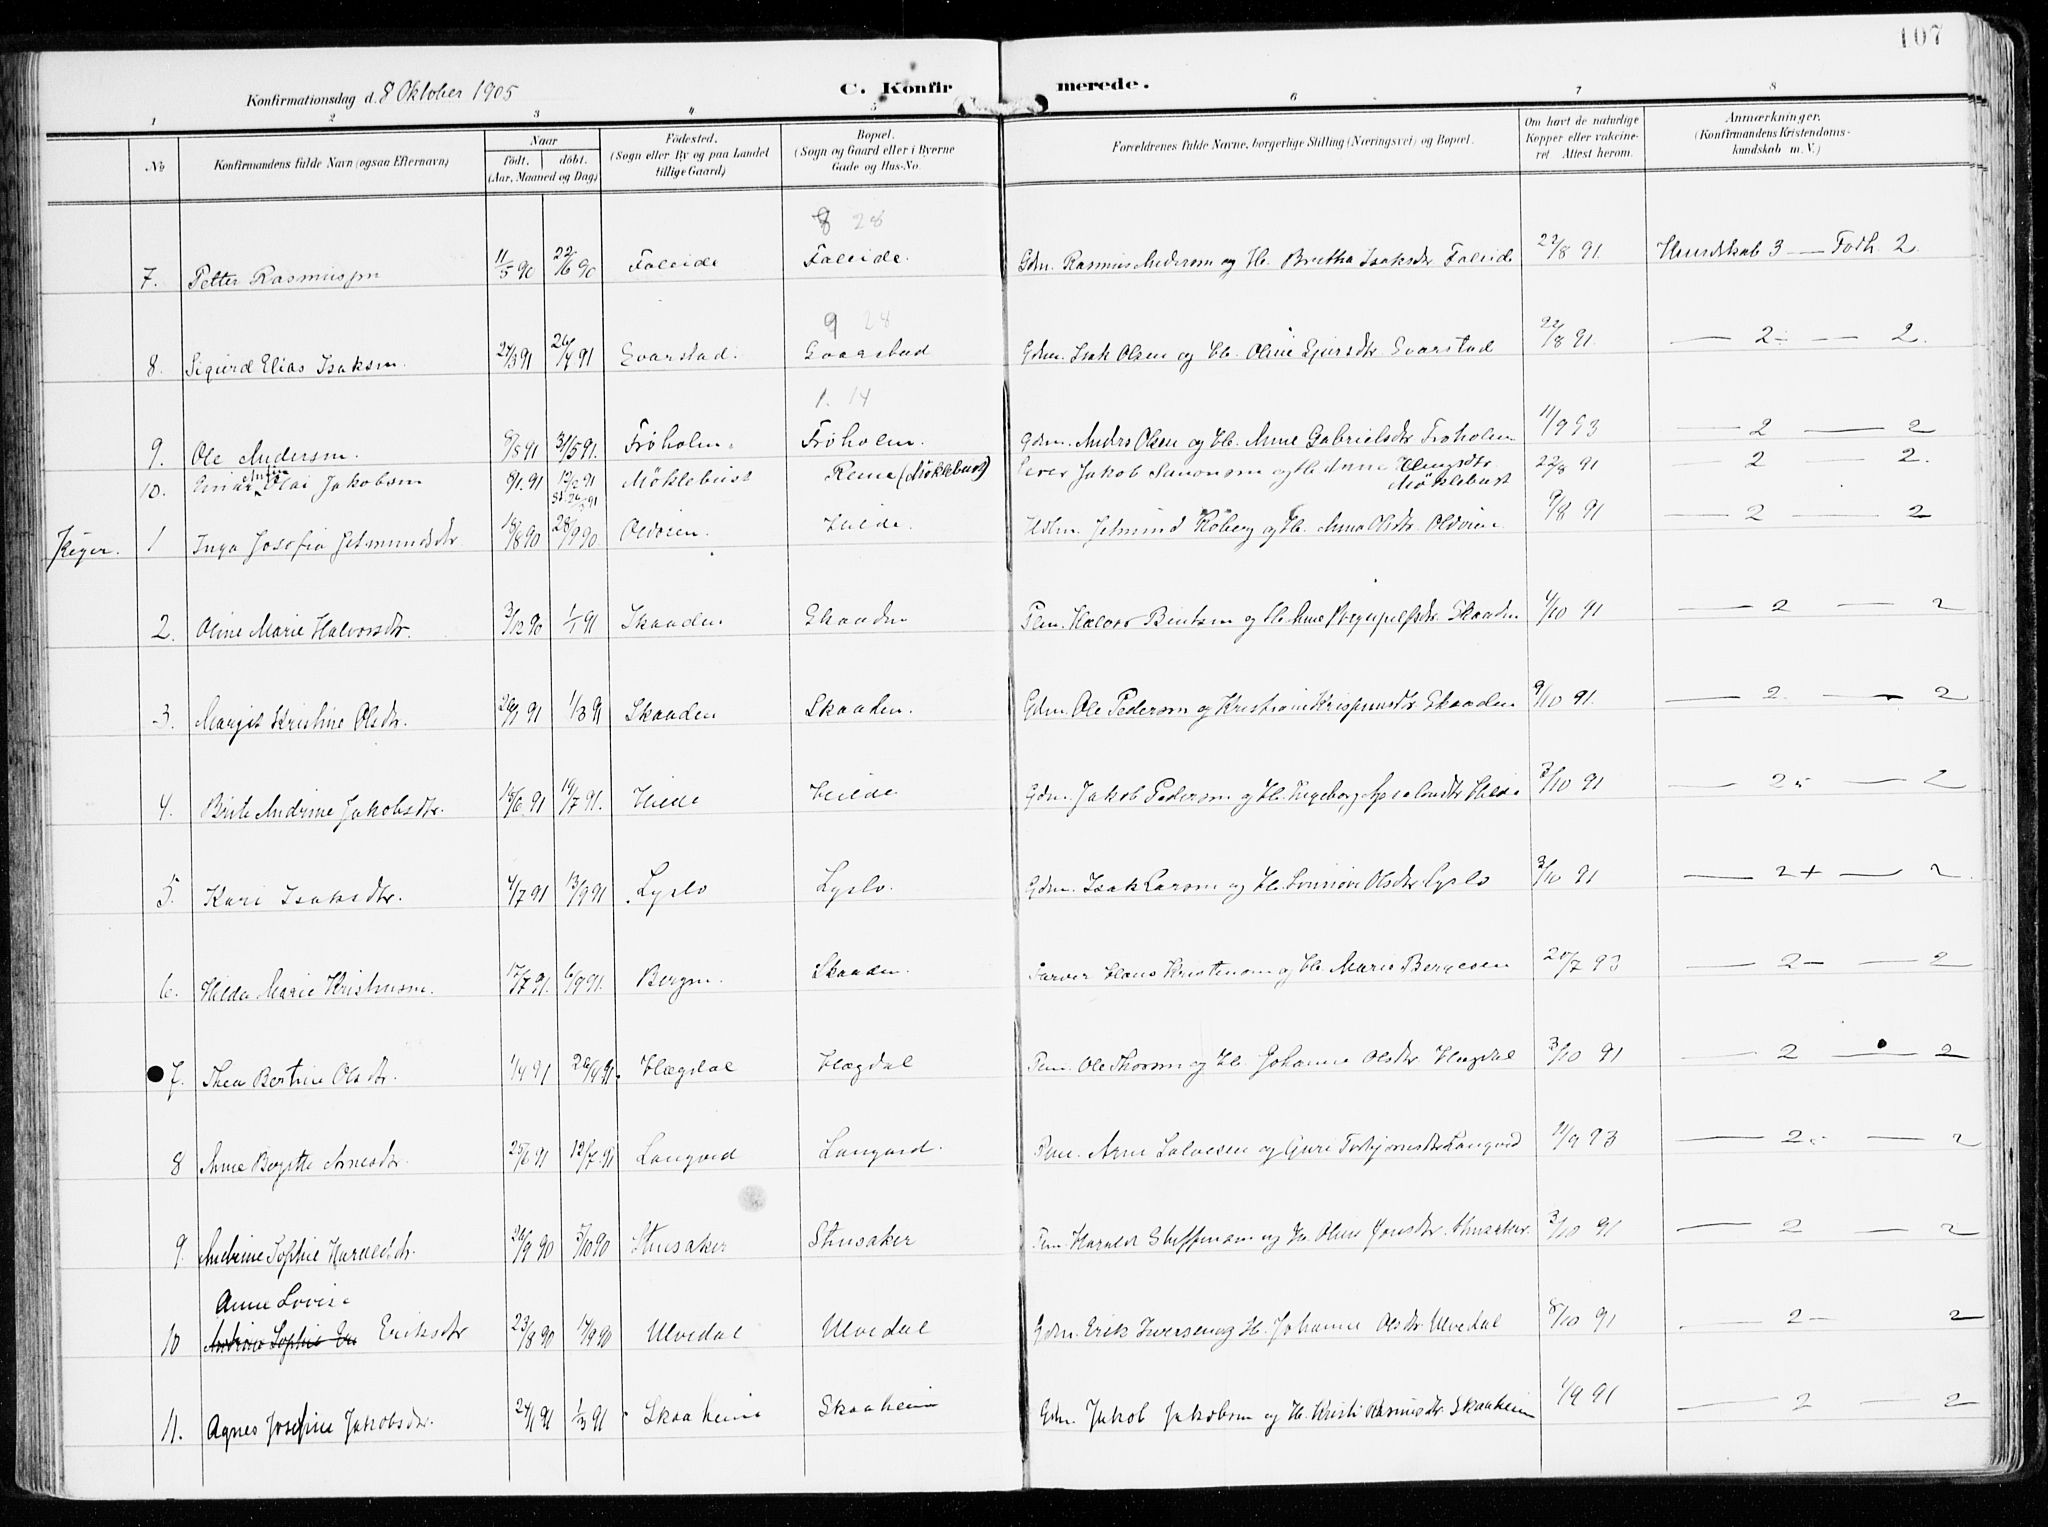 107
Konfirmationsdag d. 8 Oktober 1905
C. Konfirmerede.
1 2 3 4 5 6 7 8
No
Konfirmandens fulde Navn (ogsaa Efternavn)
Naar
født. døbt.
(Aar, Maaned og Dag)
Fødested.
(Sogn eller By og paa Landet
tillige Gaard)
Bopæl.
(Sogn og Gaard eller i Byerne
Gade og Hus-No.
Forældrenes fulde Navne, borgerlige Stilling (Næringsvei) og Bopæl.
Om havt de naturlige
Kopper eller vakcine-
ret Attest herom.
Anmærkninger.
(Konfirmandens Kristendoms-
kundskab m. V.)
8 28
7. Petter Rasmussen 11/5 90 22/6 90 Faleide Faleide. Gdm. Rasmus Anderssen og H. Britha Isaksdtr Faleide 22/8 91 Kundskab 3 — Forh. 2
9 28
8. Sigurd Elias Isaksen. 24/3 91 26/4 91 Evarstad. Gdm. Isak Olsen og H. Oline Sjursdtr Evarstad 22/8 91. — 2 — 2.
1. 14
9. Ole Andersen. 8/5 91 31/5 91. Frøholm. Frøholm. Gdm. Anders Olsen og H. Anne Gabrielsdtr Frøholm 11/9 93 — 2 — 2
10. Olai Jakobsen 8/1. 91 Møklebust Reme (Møklebust) Jakob Simonsen og H. Anne
Møklebust 22/8 91 — 2 — 2.
Piger. 1 Inga Josefia Jetmundsdtr. 18/8 90 28/9 90 Oldøien. Hilde. Jetmund Køberg og H. Anna Olsdtr. Oldøien. 9/8 91 — 2 — 2
2. Oline Marie Halvorsdtr. 3/12 90 1/1 91 Skaaden Skaaden Halvor Bentsen og H. Anne Skaaden 4/10 91 — 2 — 2
3. Margit Kristine Olsdtr. 1/3 91 Skaaden Skaaden. Gdm. Ole Pedersen og Kristine Krispinusdtr Skaaden 9/10 91. — 2 — 2
4. Brite Andrine Jakobsdtr. 18/6 91 19/7 91. Hilde Hilde Gdm. Jakob Pedersen og H. Ingeborg Apsalonsdtr Hilde 3/10 91 — 2 — 2
5. Kari Isaksdtr. 4/7 91 13/9 91. Lyslo Lyslo. Gdm. Isak Larsen og H. Olsdtr Lyslo 3/10 91 — 2+ — 2.
6. Hilda Marie Kristensen. 17/7 91. 6/9 91. Bergen. Skaaden. Farver Hans Kristensen og H. Marie Bergesen 20/7 93 — 2 — 2
7. Thea Bertine Olsdtr. 1/4 91 26/4 91. Hægdal Hægdal Ole Thorsen og H. Johanne Olsdtr Hægdal 3/10 91 — 2 — 2
8 Anne Birgitte Arnesdtr. 25/6 91 12/7 91 Langvad Langvad. Arne Salvesen og Guri Torbjørnsdtr Langvad 11/9 93 — 2 — 2
9. Andrine Sophie Haraldsdtr. 26/9 90 5/10 90 Stusaker Stusaker Harald Steffensen og H. Oline Jonsdtr. Stusaker. 3/10 91 — 2 — 2
Anne Lovise
10 Andrine Sophie Eriksdtr 23/8 90 17/9 90 Ulvedal Ulvedal Gdm. Erik Iversen og H. Johanne Olsdtr Ulvedal 8/10 91 — 2 — 2
11. Agnes Josefine Jakobsdtr. 24/1 91 1/3 91 Skaaheim Skaaheim Gdm. Jakob Jakobsen og H. Kristi Rasmusdtr Skaaheim 1/9 91 — 2 — 2